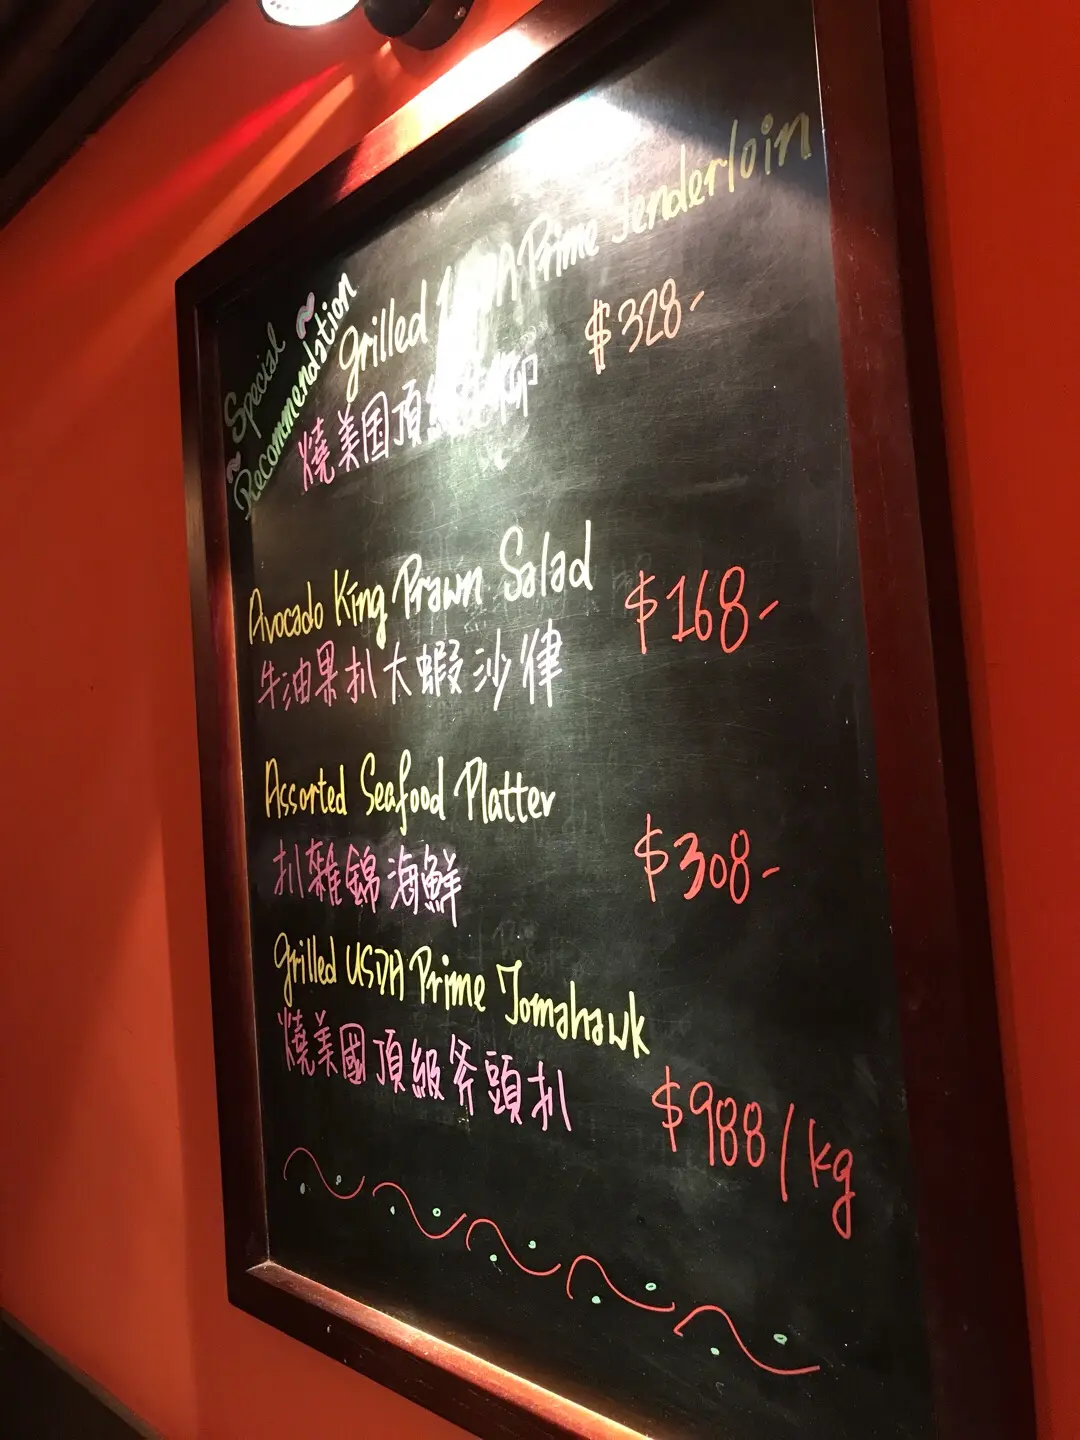 ~ Special ~
Recommendation
Grilled USDA Prime Tenderloin
$328-
燒美国頂級牛柳
Avocado King Prawn Salad
$168-
牛油果扒大蝦沙律
Assorted Seafood Platter
扒雜錦海鮮
$308-
Grilled USDA Prime Tomahawk
燒美國頂級斧頭扒
$988/kg